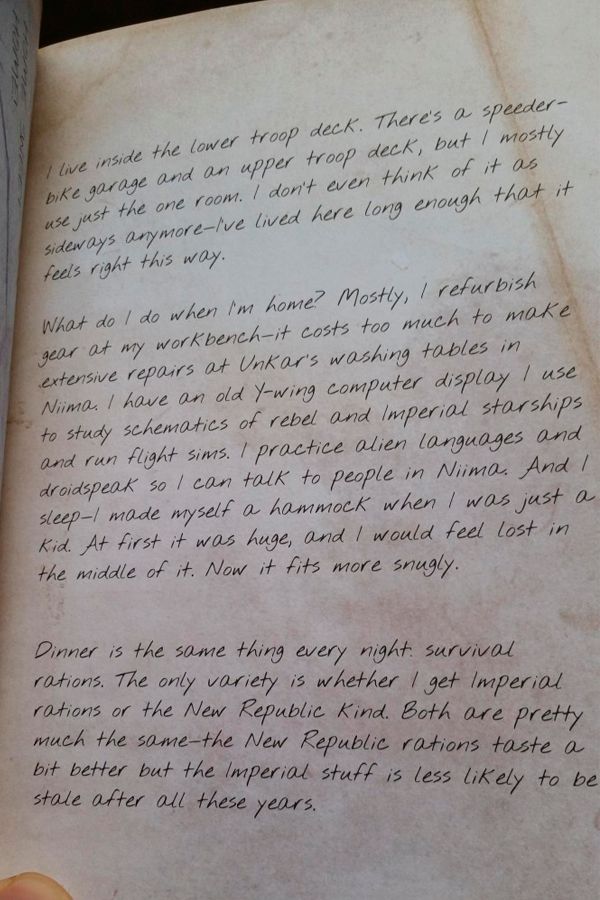 I live inside the lower troop deck. There's a speeder-
bike garage and an upper troop deck, but I mostly
use just the one room. I don't even think of it as
sideways anymore—I've lived here long enough that it
feels right this way.
What do I do when I'm home? Mostly, I refurbish
gear at my workbench—it costs too much to make
extensive repairs at Unkar's washing tables in
Niima. I have an old Y-wing computer display I use
to study schematics of rebel and Imperial starships
and run flight sims. I practice alien languages and
droidspeak so I can talk to people in Niima. And I
sleep—I made myself a hammock when I was just a
kid. At first it was huge, and I would feel lost in
the middle of it. Now it fits more snugly.
Dinner is the same thing every night: survival
rations. The only variety is whether I get Imperial
rations or the New Republic kind. Both are pretty
much the same—the New Republic rations taste a
bit better but the Imperial stuff is less likely to be
stale after all these years.